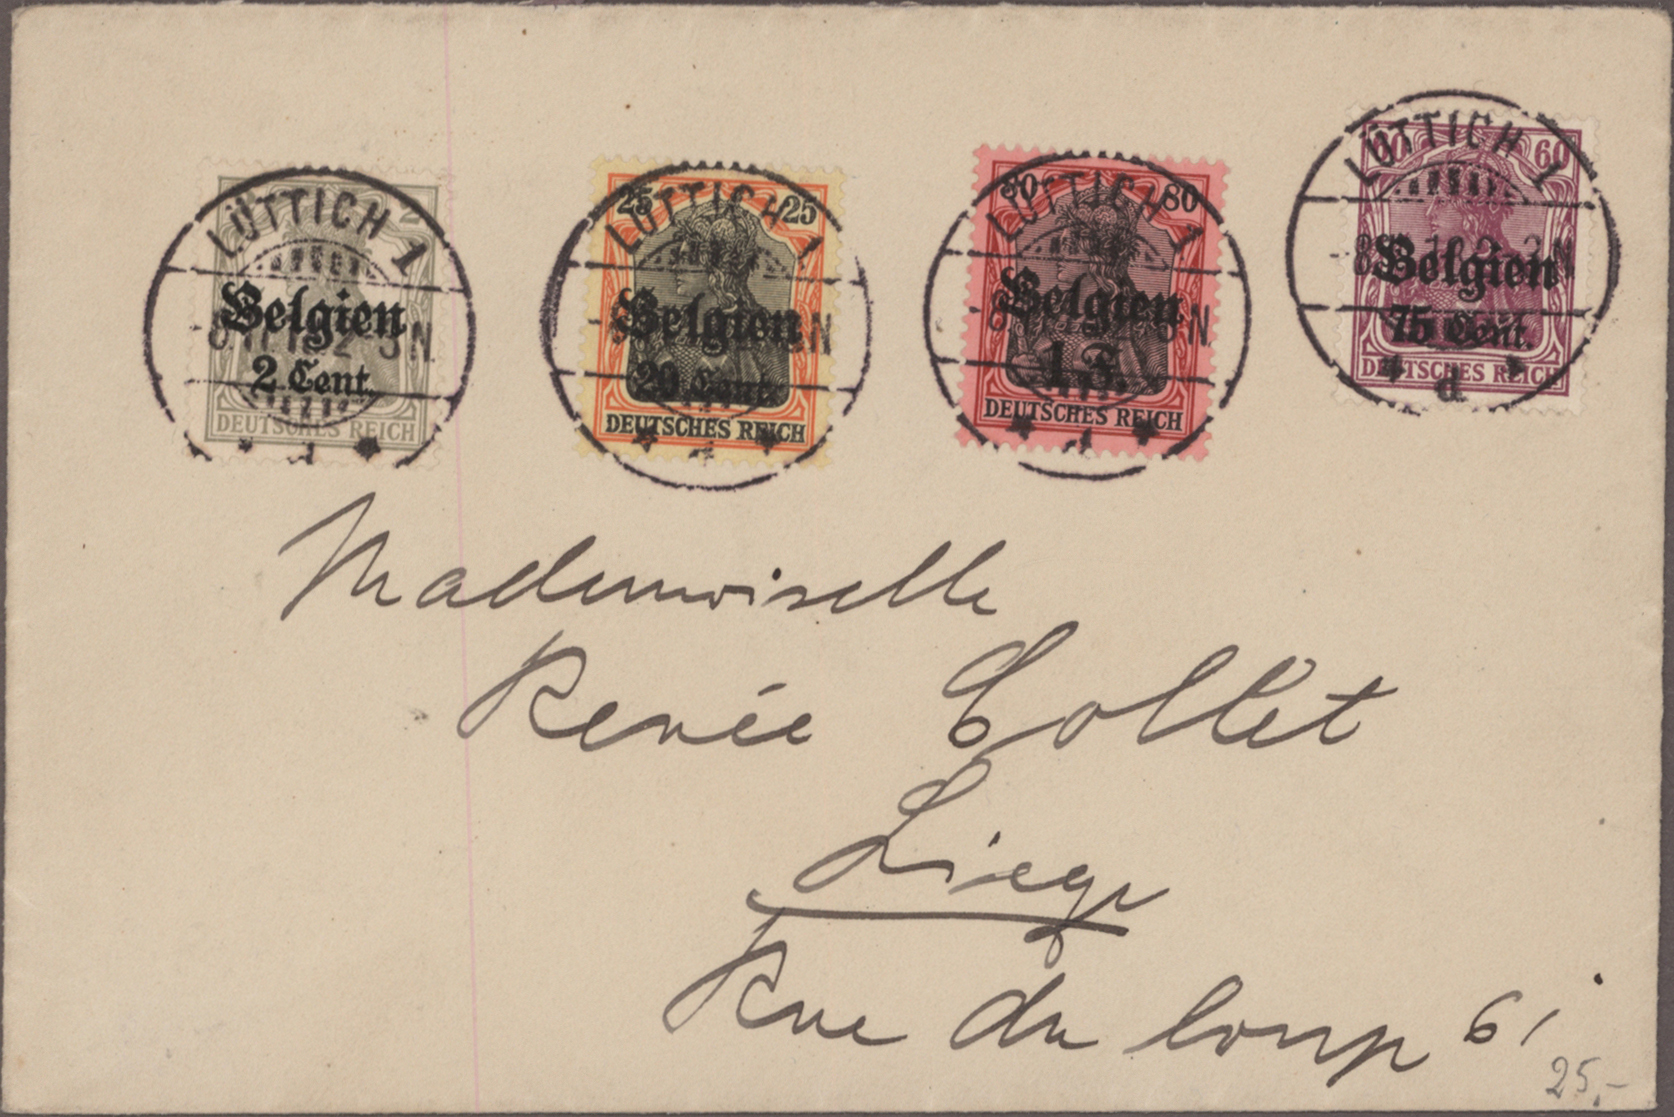 LÜTTICH 1
2
Belgien
2 Cent.
DEUTSCHES REICH
LÜTTICH 1
25 25
Belgien
Cent.
DEUTSCHES REICH
LÜTTICH 1
80 80
Belgien
1 F.
DEUTSCHES REICH
LÜTTICH 1
60 60
Belgien
75 Cent.
DEUTSCHES REICH
d
Mademoiselle
Renée Collet
Liege
Rue du loup 61
25,-